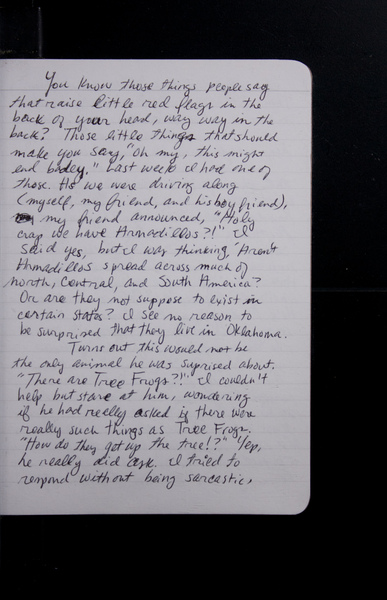 You know those things people say
that raise little red flags in the
back of your head, way way in the
back? Those little things that should
make you say, "oh my, this might
end badly." Last week I had one of
those. As we were driving along
(myself, my friend, and his boyfriend),
my friend announced, "Holy
crap we have Armadillos?!" I
said yes, but I was thinking, 'Aren't
Armadillos spread across much of
north, central, and South America?
Or are they not suppose to exist in
certain states? I see no reason to
be surprised that they live in Oklahoma.
Turns out this would not be
the only animal he was suprised about.
"There are Tree Frogs?!" I couldn't
help but stare at him, wondering
if he had really asked if there were
really such things as Tree Frogs.
"How do they get up the tree!?" Yep,
he really did ask. I tried to
respond without being sarcastic,